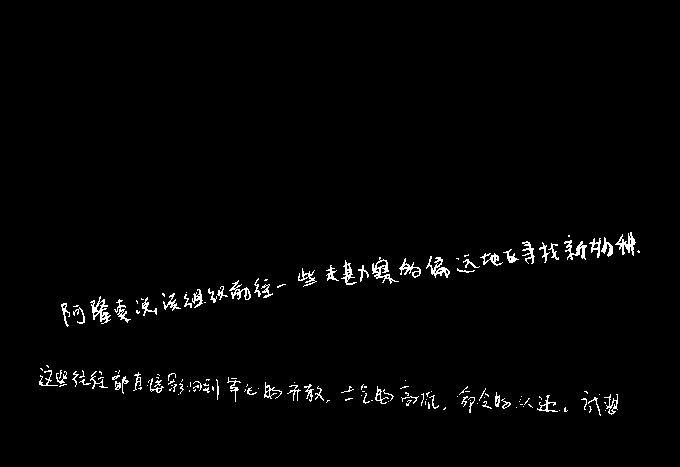 阿隆索说该组织前往一些未勘察的偏远地区寻找新物种.
这些往往都直接影响到军心的齐散,士气的高低,命令的认速。试想